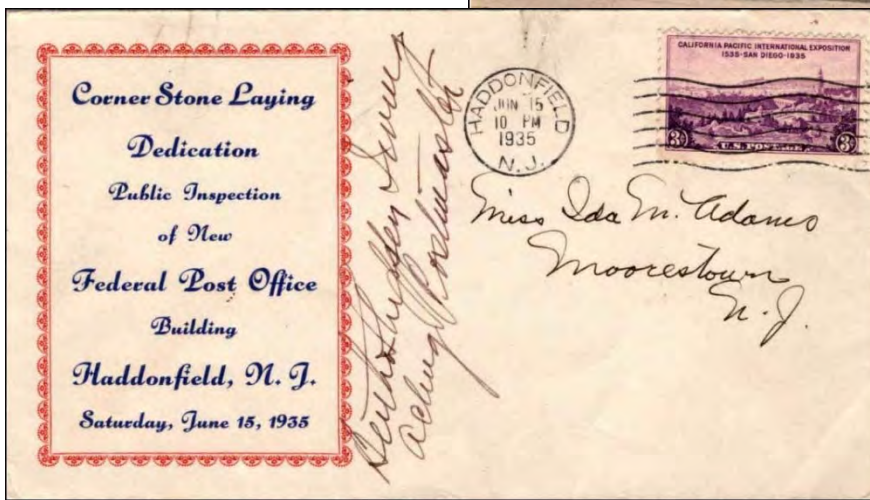 Corner Stone Laying
Dedication
Public Inspection
of New
Federal Post Office
Building
Haddonfield, N. J.
Saturday, June 15, 1935
acting Postmaster
HADDONFIELD
JUN 15
10 PM
1935
N. J.
CALIFORNIA PACIFIC INTERNATIONAL EXPOSITION
1535-SAN DIEGO-1935
3¢ 3¢
U.S. POSTAGE
Miss Ida M. Adams
Moorestown
N. J.